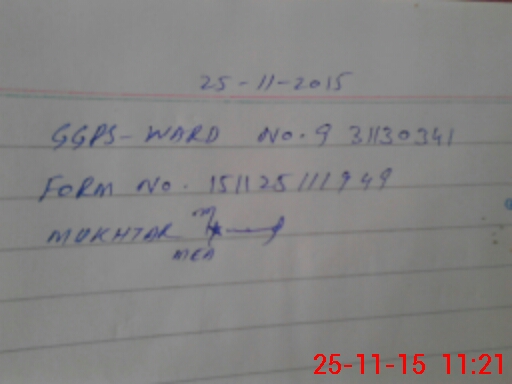 25-11-2015
GGPS-WARD No. 9 31130341
FORM No. 151125111949
MUKHTAR
MEA
25-11-15 11:21